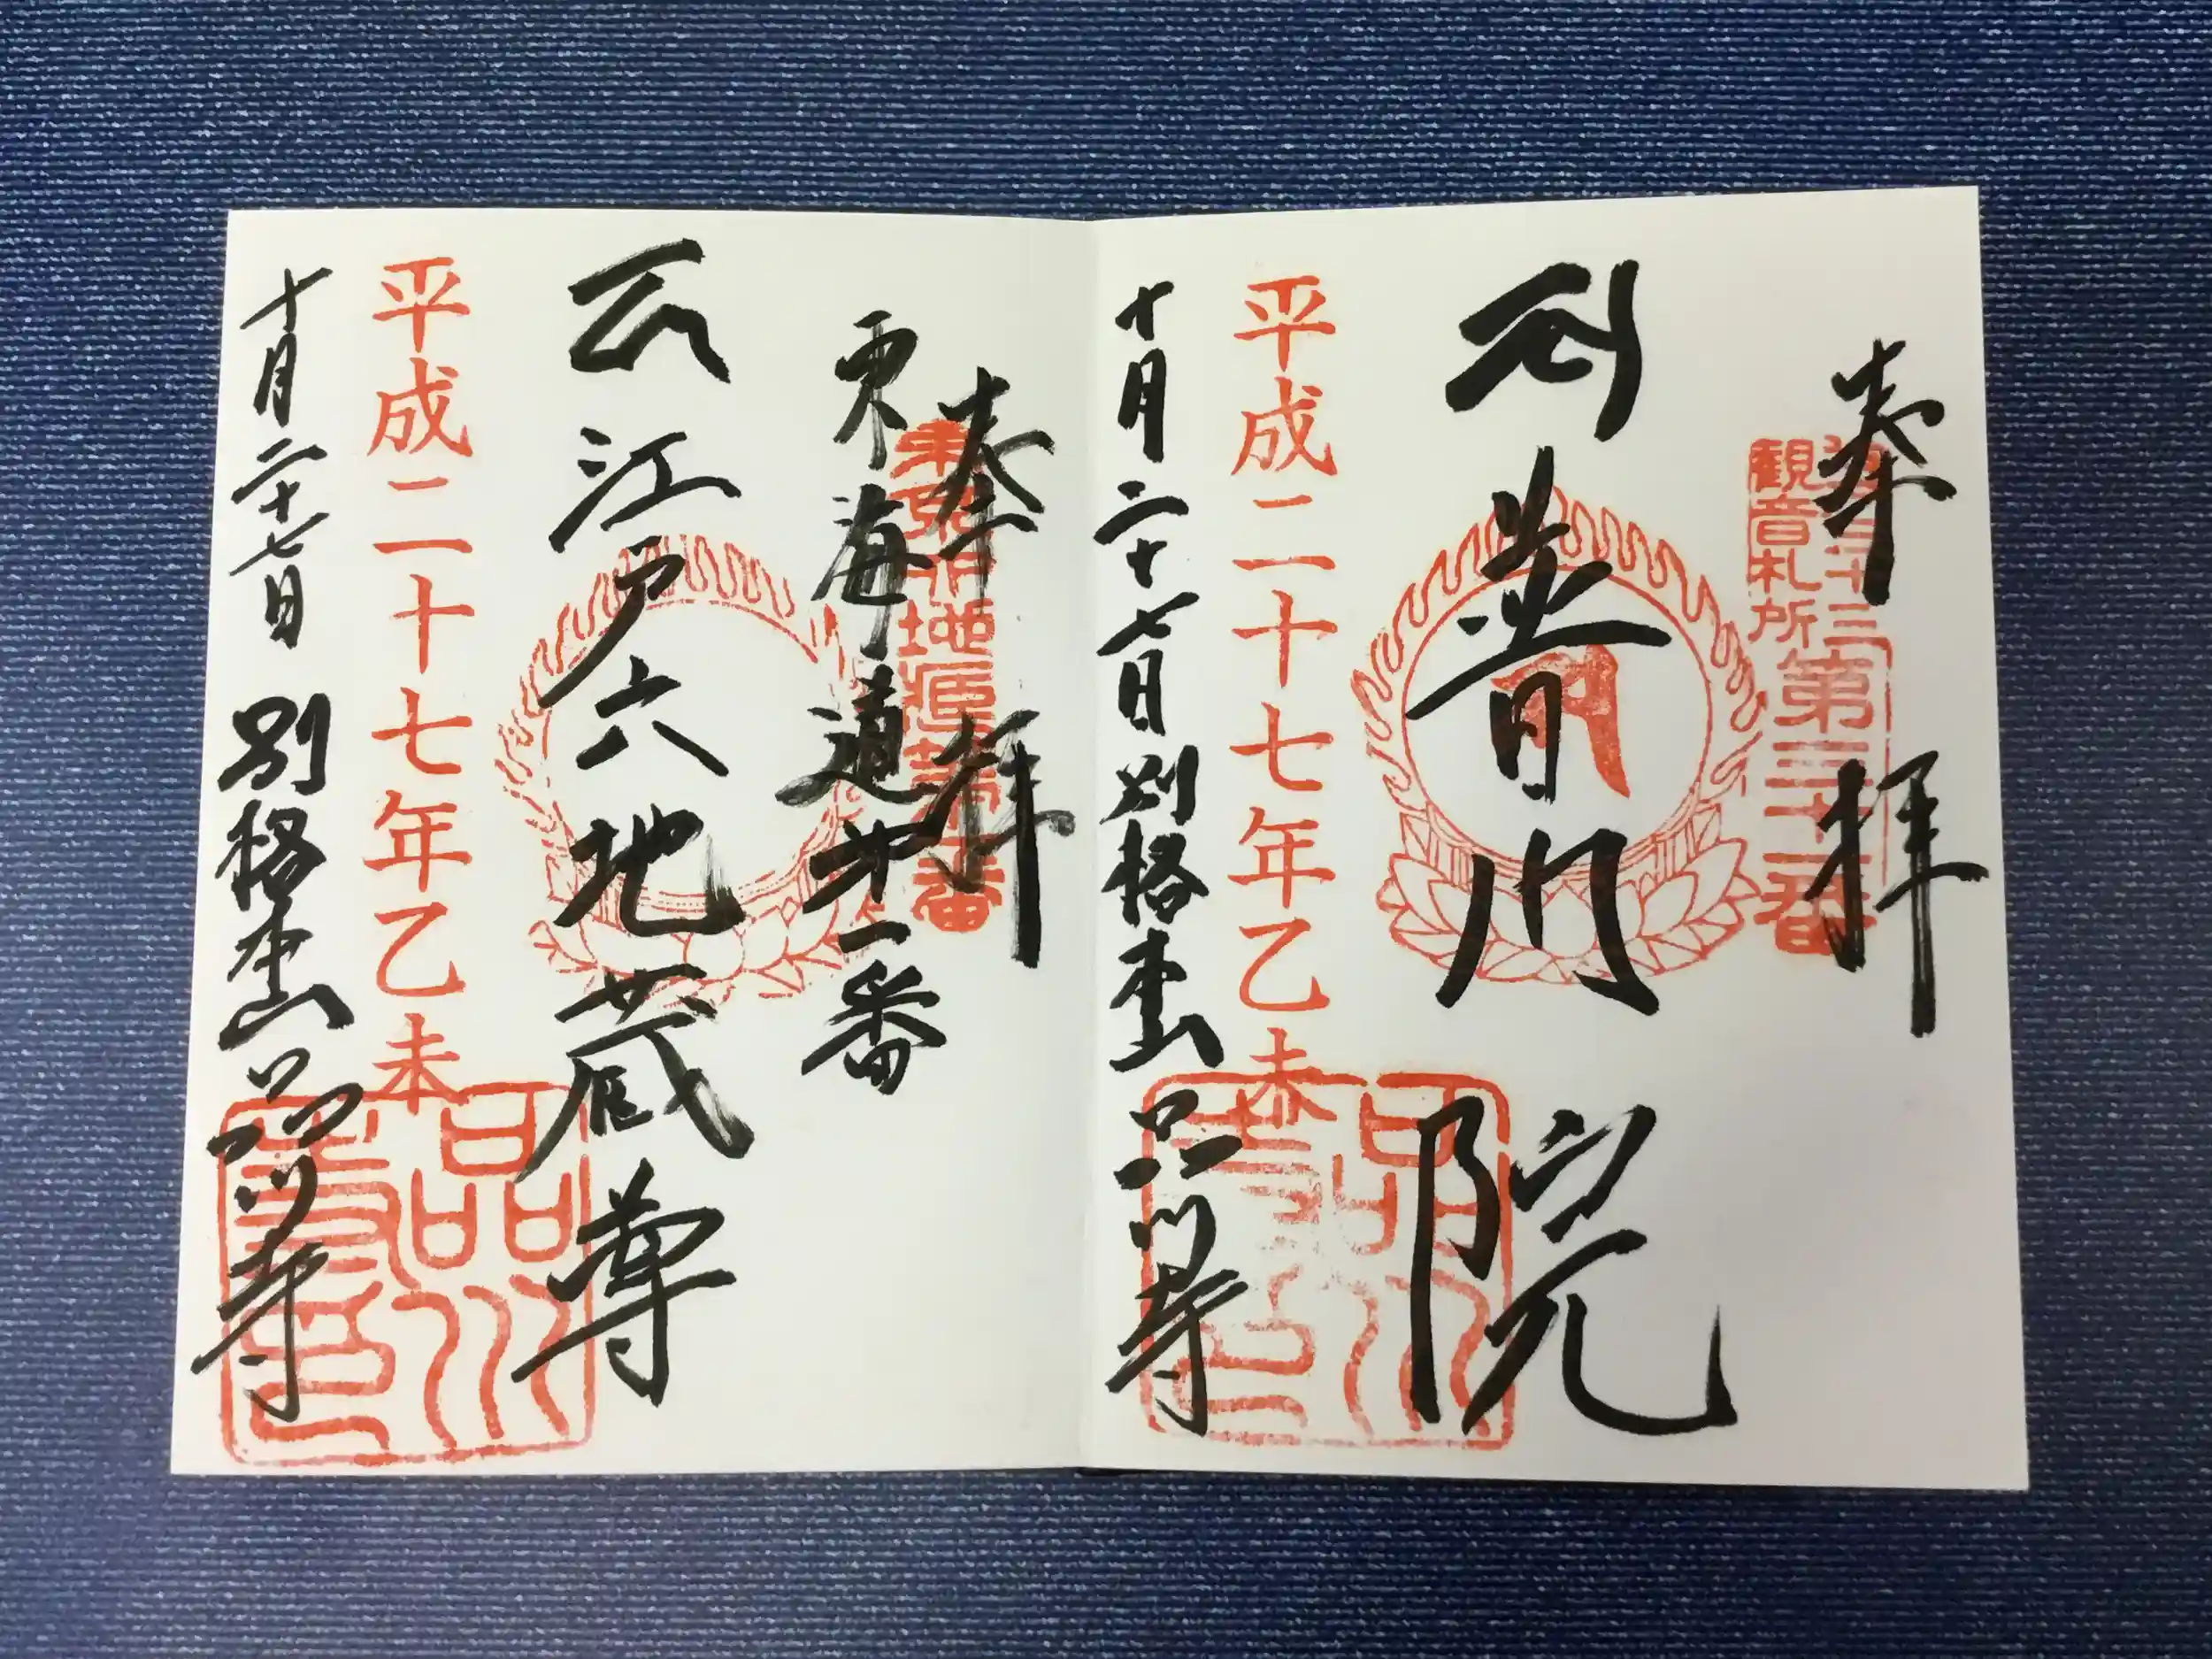 奉拝
江戸三十三
観音札所
第三十一番
普門院
平成二十七年乙未
十月二十七日 別格本山 品川寺
奉拝
東海道第一番
江戸六地蔵尊
平成二十七年乙未
十月二十七日 別格本山 品川寺